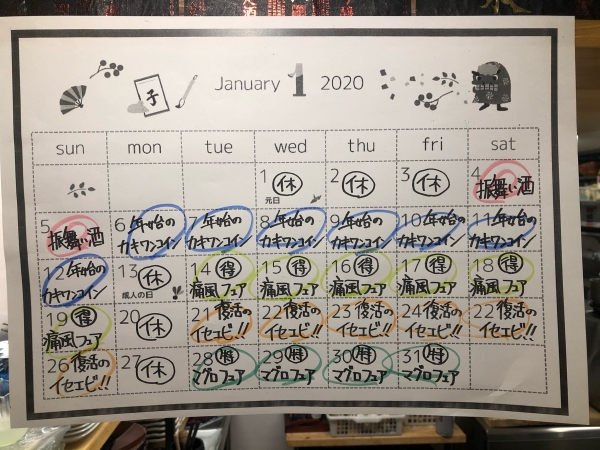 子
January 1 2020
sun mon tue wed thu fri sat
1 休 2 休 3 休 4
元日 振舞い酒
5 6 年始の 7 年始の 8 年始の 9 年始の 10 年始の 11 年始の
振舞い酒 カキワンコイン カキワンコイン カキワンコイン カキワンコイン カキワンコイン カキワンコイン
12 年始の 13 休 14 得 15 得 16 得 17 得 18 得
カキワンコイン 成人の日 痛風フェア 痛風フェア 痛風フェア 痛風フェア 痛風フェア
19 得 20 休 21 復活の 22 復活の 23 復活の 24 復活の 25 復活の
痛風フェア イセエビ!! イセエビ!! イセエビ!! イセエビ!! イセエビ!!
26 復活の 27 休 28 29 30 31
イセエビ!! マグロフェア マグロフェア マグロフェア マグロフェア